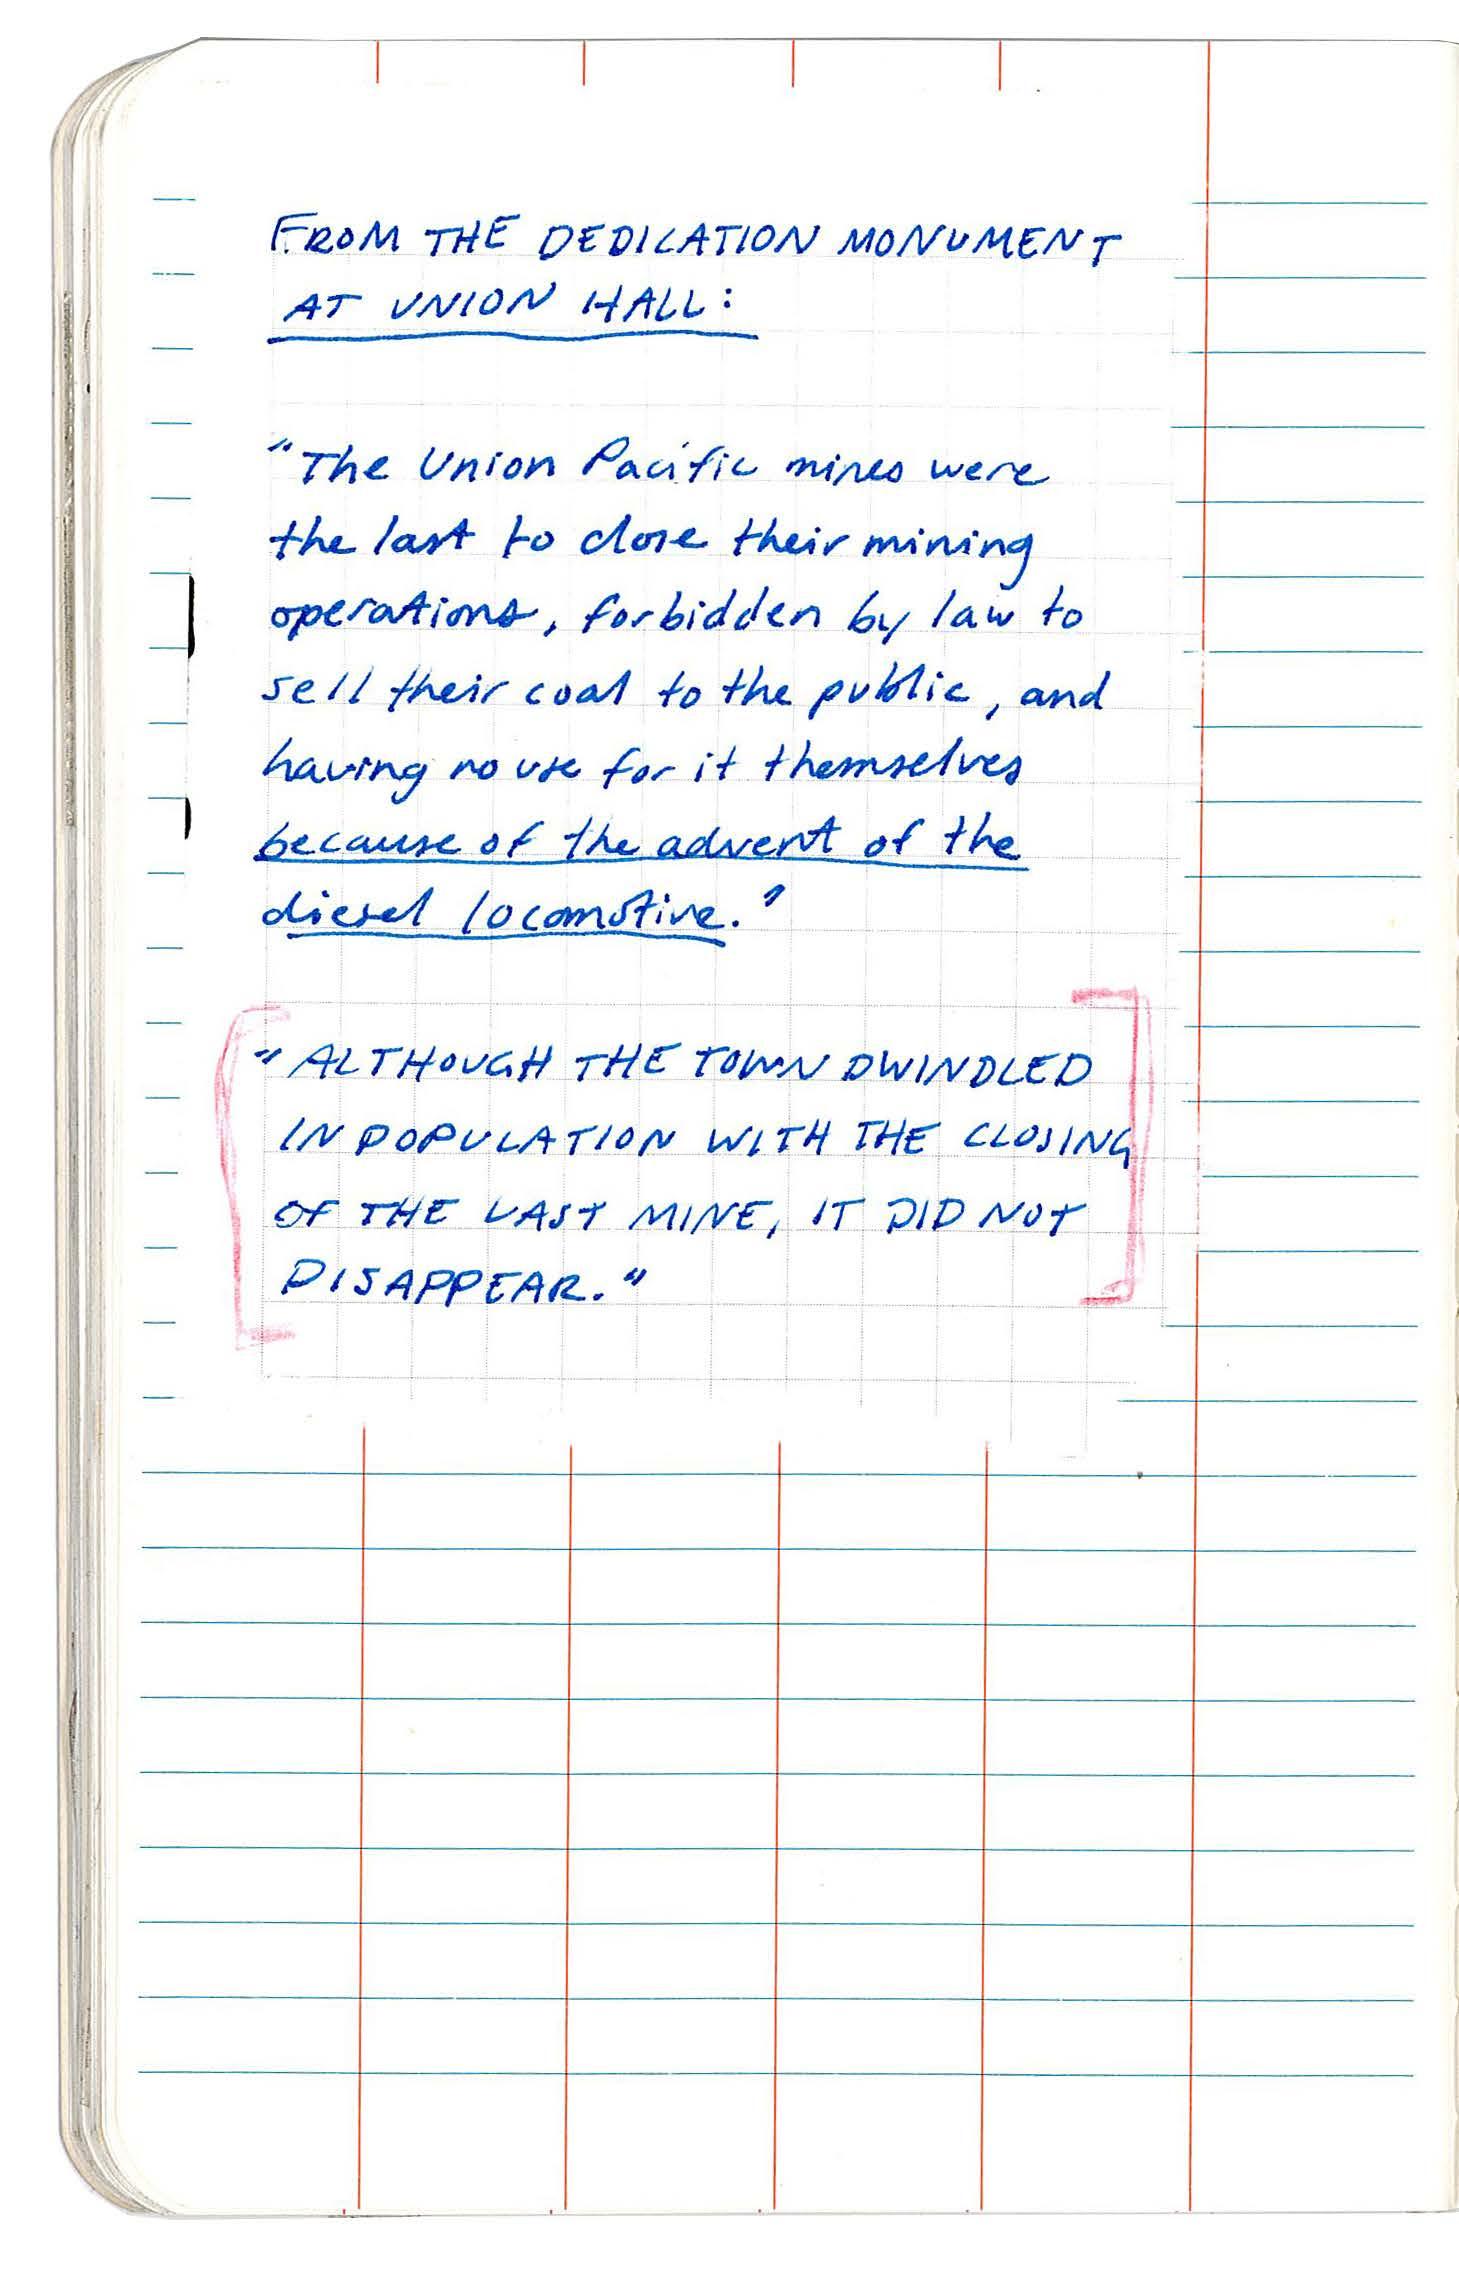 FROM THE DEDICATION MONUMENT
AT UNION HALL:
"The Union Pacific mines were
the last to close their mining
operations, forbidden by law to
sell their coal to the public, and
having no use for it themselves
because of the advent of the
diesel locomotive."
"ALTHOUGH THE TOWN DWINDLED
IN POPULATION WITH THE CLOSING
OF THE LAST MINE, IT DID NOT
DISAPPEAR."